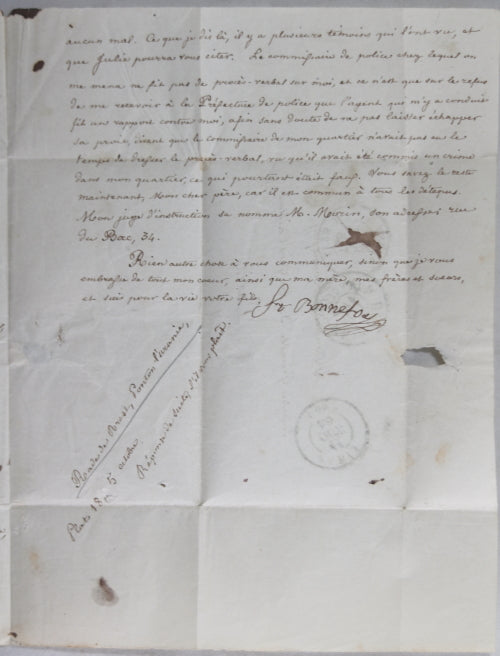 aucun mal. Ce que je dis là, il y a plusieurs témoins qui l'ont vu, et
que Julie pourra vous citer. Le commissaire de police chez lequel on
me mena ne fit pas de procès-verbal sur moi, et ce n'est que sur le refus
de me recevoir à la Préfecture de police que l'agent qui m'y a conduit
fit un rapport contre moi, afin sans doute de ne pas laisser échapper
sa proie, disant que le commissaire de mon quartier n'avait pas eu le
temps de dresser le procès-verbal, vu qu'il avait été commis un crime
dans mon quartier, ce qui pourtant était faux. Vous savez le reste
maintenant, Mon cher père, car il est commun à tous les détenus.
Mon juge d'instruction se nomme M. son adresse: rue
du Bac, 34.
Rien autre chose à vous communiquer, sinon que je vous
embrasse de tout mon coeur, ainsi que ma mère, mes frères et soeurs,
et suis pour la vie votre fils.
Bonnefo
Rade de Brest, Ponton l'Uranie,
5 octobre.
Réponse de suite, s'il vous plaît.